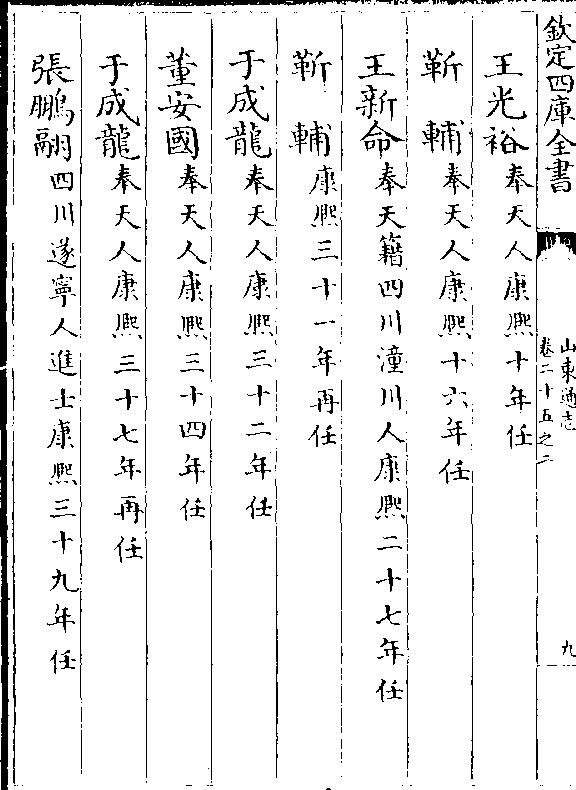 欽定四庫全書
山東通志
卷二十五之二
九
王光裕奉天人康熙十年任
靳輔奉天人康熙十六年任
王新命奉天籍四川潼川人康熙二十七年任
靳輔康熙三十一年再任
于成龍奉天人康熙三十二年任
董安國奉天人康熙三十四年任
于成龍奉天人康熙三十七年再任
張鵬翮四川遂寧人進士康熙三十九年任